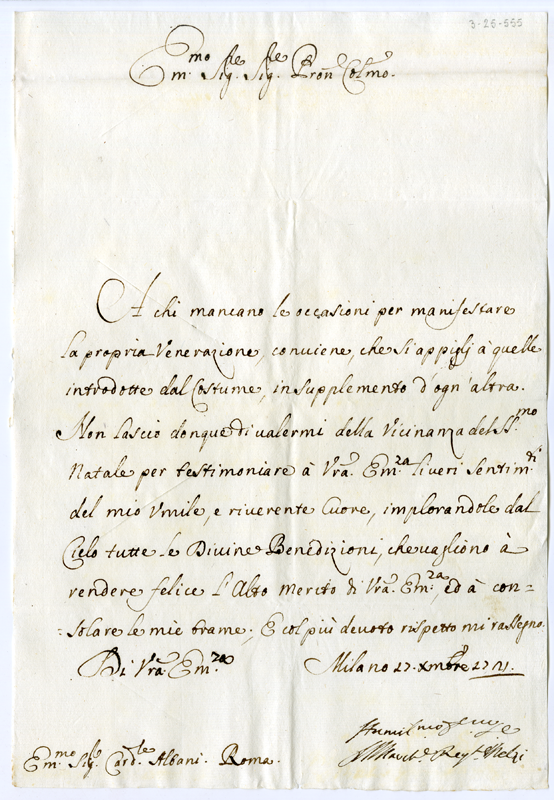 3-25-555
Em.mo Sig.re Sig.re Pron Colmo.
A chi mancano le occasioni per manifestare
la propria Venerazione, conuiene, che si appiglj à quelle
introdotte dal Costume, in supplemento d'ogn'altra.
Non lascio donque di valermi della Vicinanza del SS.mo
Natale per testimoniare à Vrã. Em.za li veri sentim.ti
del mio Vmile, e riuerente Cuore, implorandole dal
Cielo tutte le Diuine Benedizioni, che uagliono à
rendere felice l'Alto Merito di Vrã. Em.za ed à con=
=solare le mie brame; E col più deuoto rispetto mi rassegno.
Di Vrã. Em.za Milano 17. Xmbre 1721.
Humilmo
Em.mo Sig.r Card.le Albani. Roma.